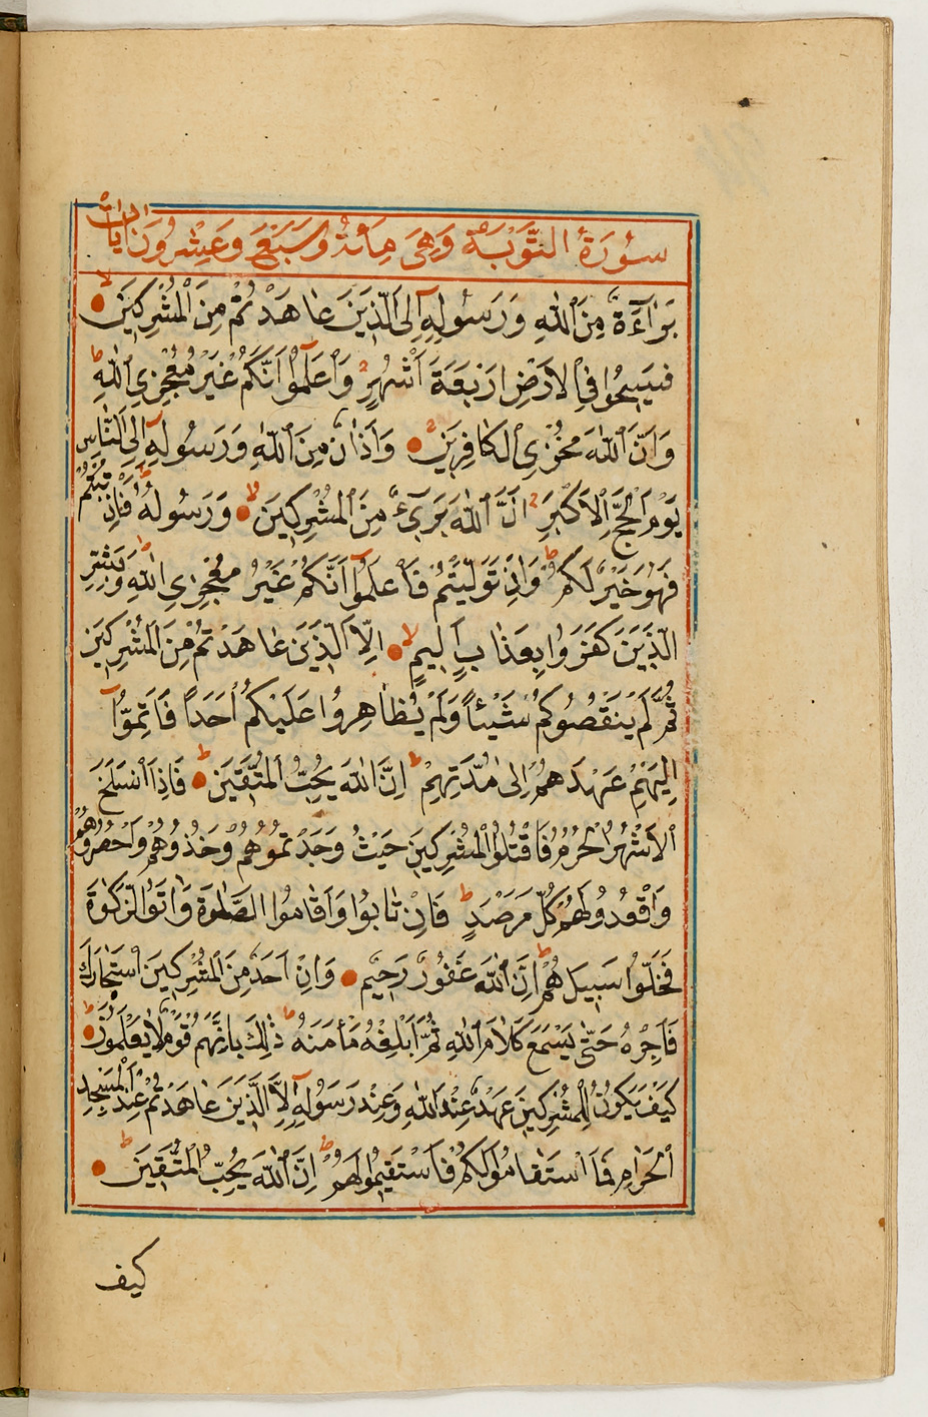 سُورَةُ التَّوْبَة وَهِيَ مِائَةٌ وَسَبْعٌ وَعِشْرُونَ اٰيَات
بَرَاۤءَةٌ مِنَ اللّٰهِ وَرَسُولِهِ اِلَى الَّذِينَ عَاهَدْتُمْ مِنَ الْمُشْرِكِينَ لا
فَسِيحُوا فِي الْاَرْضِ اَرْبَعَةَ اَشْهُرٍ وَاعْلَمُوا اَنَّكُمْ غَيْرُ مُعْجِزِي اللّٰهِ ط
وَاَنَّ اللّٰهَ مُخْزِي الْكَافِرِينَ وَاَذَانٌ مِنَ اللّٰهِ وَرَسُولِهِ اِلَى النَّاسِ
يَوْمَ الْحَجِّ الْاَكْبَرِ اَنَّ اللّٰهَ بَرِيۤءٌ مِنَ الْمُشْرِكِينَ لا وَرَسُولُهُ ط فَاِنْ تُبْتُمْ
فَهُوَ خَيْرٌ لَكُمْ ط وَاِنْ تَوَلَّيْتُمْ فَاعْلَمُوا اَنَّكُمْ غَيْرُ مُعْجِزِي اللّٰهِ ط وَبَشِّرِ
الَّذِينَ كَفَرُوا بِعَذَابٍ اَلِيمٍ لا اِلَّا الَّذِينَ عَاهَدْتُمْ مِنَ الْمُشْرِكِينَ
ثُمَّ لَمْ يَنْقُصُوكُمْ شَيْئاً وَلَمْ يُظَاهِرُوا عَلَيْكُمْ اَحَداً فَاَتِمُّوا
اِلَيْهِمْ عَهْدَهُمْ اِلٰى مُدَّتِهِمْ ط اِنَّ اللّٰهَ يُحِبُّ الْمُتَّقِينَ ط فَاِذَا انْسَلَخَ
الْاَشْهُرُ الْحُرُمُ فَاقْتُلُوا الْمُشْرِكِينَ حَيْثُ وَجَدْتُمُوهُمْ وَخُذُوهُمْ وَاحْصُرُوهُمْ
وَاقْعُدُوا لَهُمْ كُلَّ مَرْصَدٍ ط فَاِنْ تَابُوا وَاَقَامُوا الصَّلٰوةَ وَاٰتَوُا الزَّكٰوةَ
فَخَلُّوا سَبِيلَهُمْ ط اِنَّ اللّٰهَ غَفُورٌ رَحِيمٌ وَاِنْ اَحَدٌ مِنَ الْمُشْرِكِينَ اسْتَجَارَكَ
فَاَجِرْهُ حَتّٰى يَسْمَعَ كَلَامَ اللّٰهِ ثُمَّ اَبْلِغْهُ مَأْمَنَهُ ط ذٰلِكَ بِاَنَّهُمْ قَوْمٌ لَا يَعْلَمُونَ ط
كَيْفَ يَكُونُ لِلْمُشْرِكِينَ عَهْدٌ عِنْدَ اللّٰهِ وَعِنْدَ رَسُولِهِ اِلَّا الَّذِينَ عَاهَدْتُمْ عِنْدَ الْمَسْجِدِ
الْحَرَامِ فَمَا اسْتَقَامُوا لَكُمْ فَاسْتَقِيمُوا لَهُمْ ط اِنَّ اللّٰهَ يُحِبُّ الْمُتَّقِينَ ط
كيف